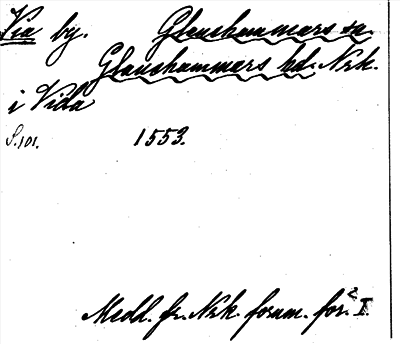 Via by. Glanshammars sn.
Glanshammars hd. Nrk.
i Vida
S.101. 1553.
Medd. fr. Nrk. fornm. för. I.